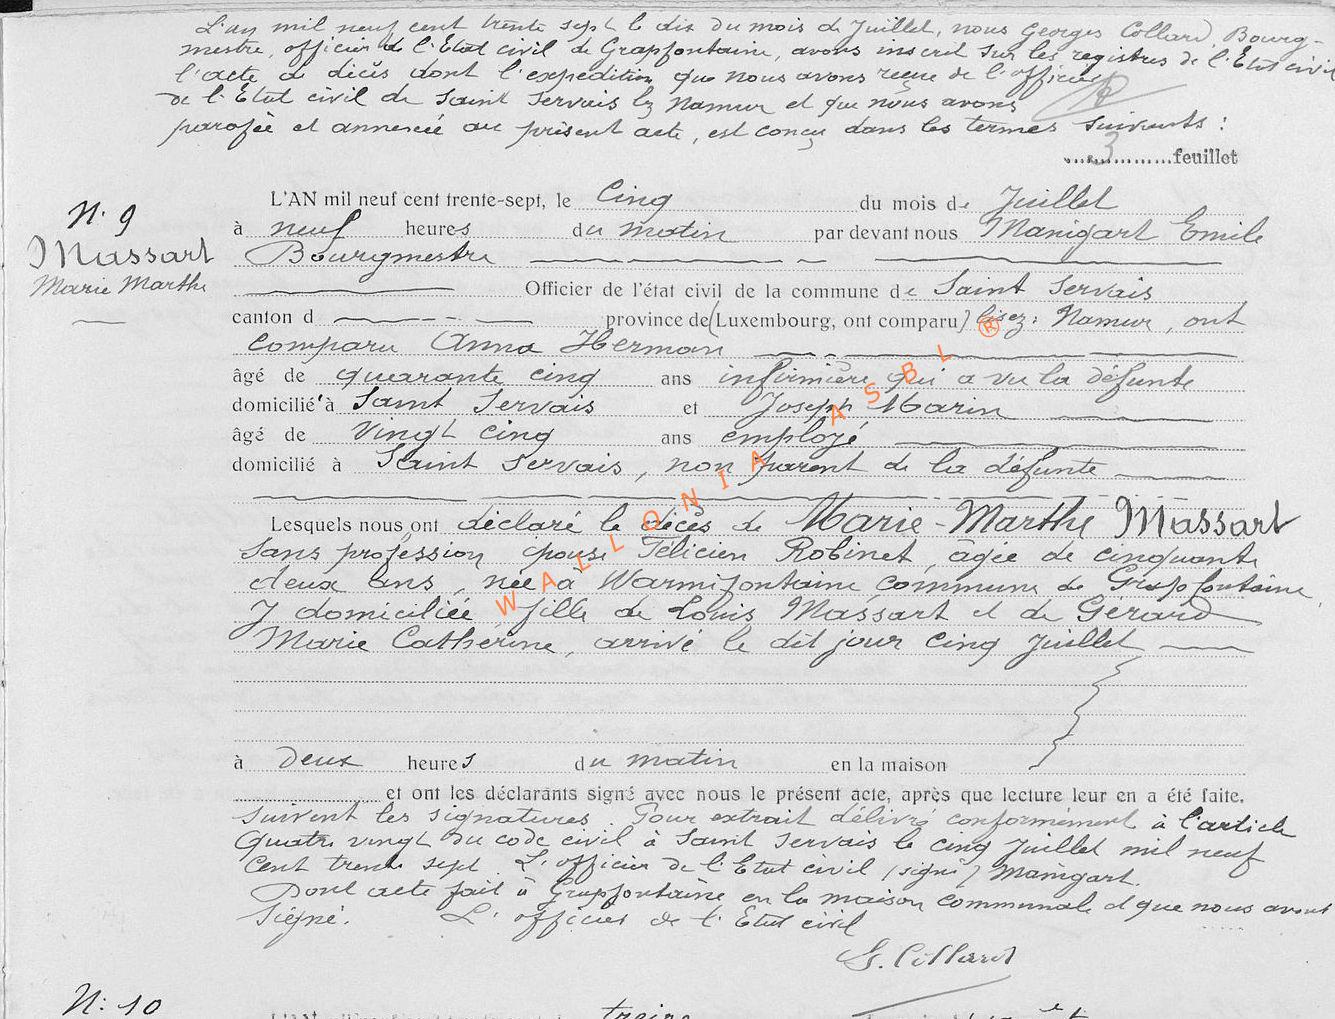 L'an mil neuf cent trente sept le dix du mois de Juillet, nous Georges Collard, Bourg-
mestre, officier de l'Etat civil de Grapfontaine, avons inscrit sur les registres de l'Etat civil
l'acte de décès dont l'expédition que nous avons reçue de l'officier
de l'Etat civil de Saint Servais lez Namur et que nous avons
parafée et annexée au présent acte, est conçu dans les termes suivants :
3 feuillet
N. 9
Massart
Marie Marthe
L'AN mil neuf cent trente-sept, le Cinq du mois de Juillet
à neuf heures du matin par devant nous Manigart Emile
Bourgmestre
Officier de l'état civil de la commune de Saint Servais
canton d province de (Luxembourg, ont comparu) lisez : Namur, ont
comparu Anna Herman
âgé de quarante cinq ans infirmière qui a vu la défunte
domicilié à Saint Servais et Joseph Marin
âgé de vingt cinq ans employé
domicilié à Saint Servais, non parent de la défunte
Lesquels nous ont déclaré le décès de Marie-Marthe Massart
sans profession épouse Félicien Robinet, âgée de cinquante
deux ans, née à Warmifontaine commune de Grapfontaine,
y domiciliée fille de Louis Massart et de Gérard
Marie Catherine, arrivé le dit jour cinq Juillet
à deux heures du matin en la maison
et ont les déclarants signé avec nous le présent acte, après que lecture leur en a été faite.
Suivent les signatures. Pour extrait délivré conformément à l'article
quatre vingt du code civil à Saint Servais le cinq Juillet mil neuf
cent trente sept. L'officier de l'Etat civil (signé) Manigart.
Dont acte fait à Grapfontaine en la maison communale et que nous avons
signé. L'officier de l'Etat civil
G. Collard
N: 10
treize
WALLONIA ASBL ®